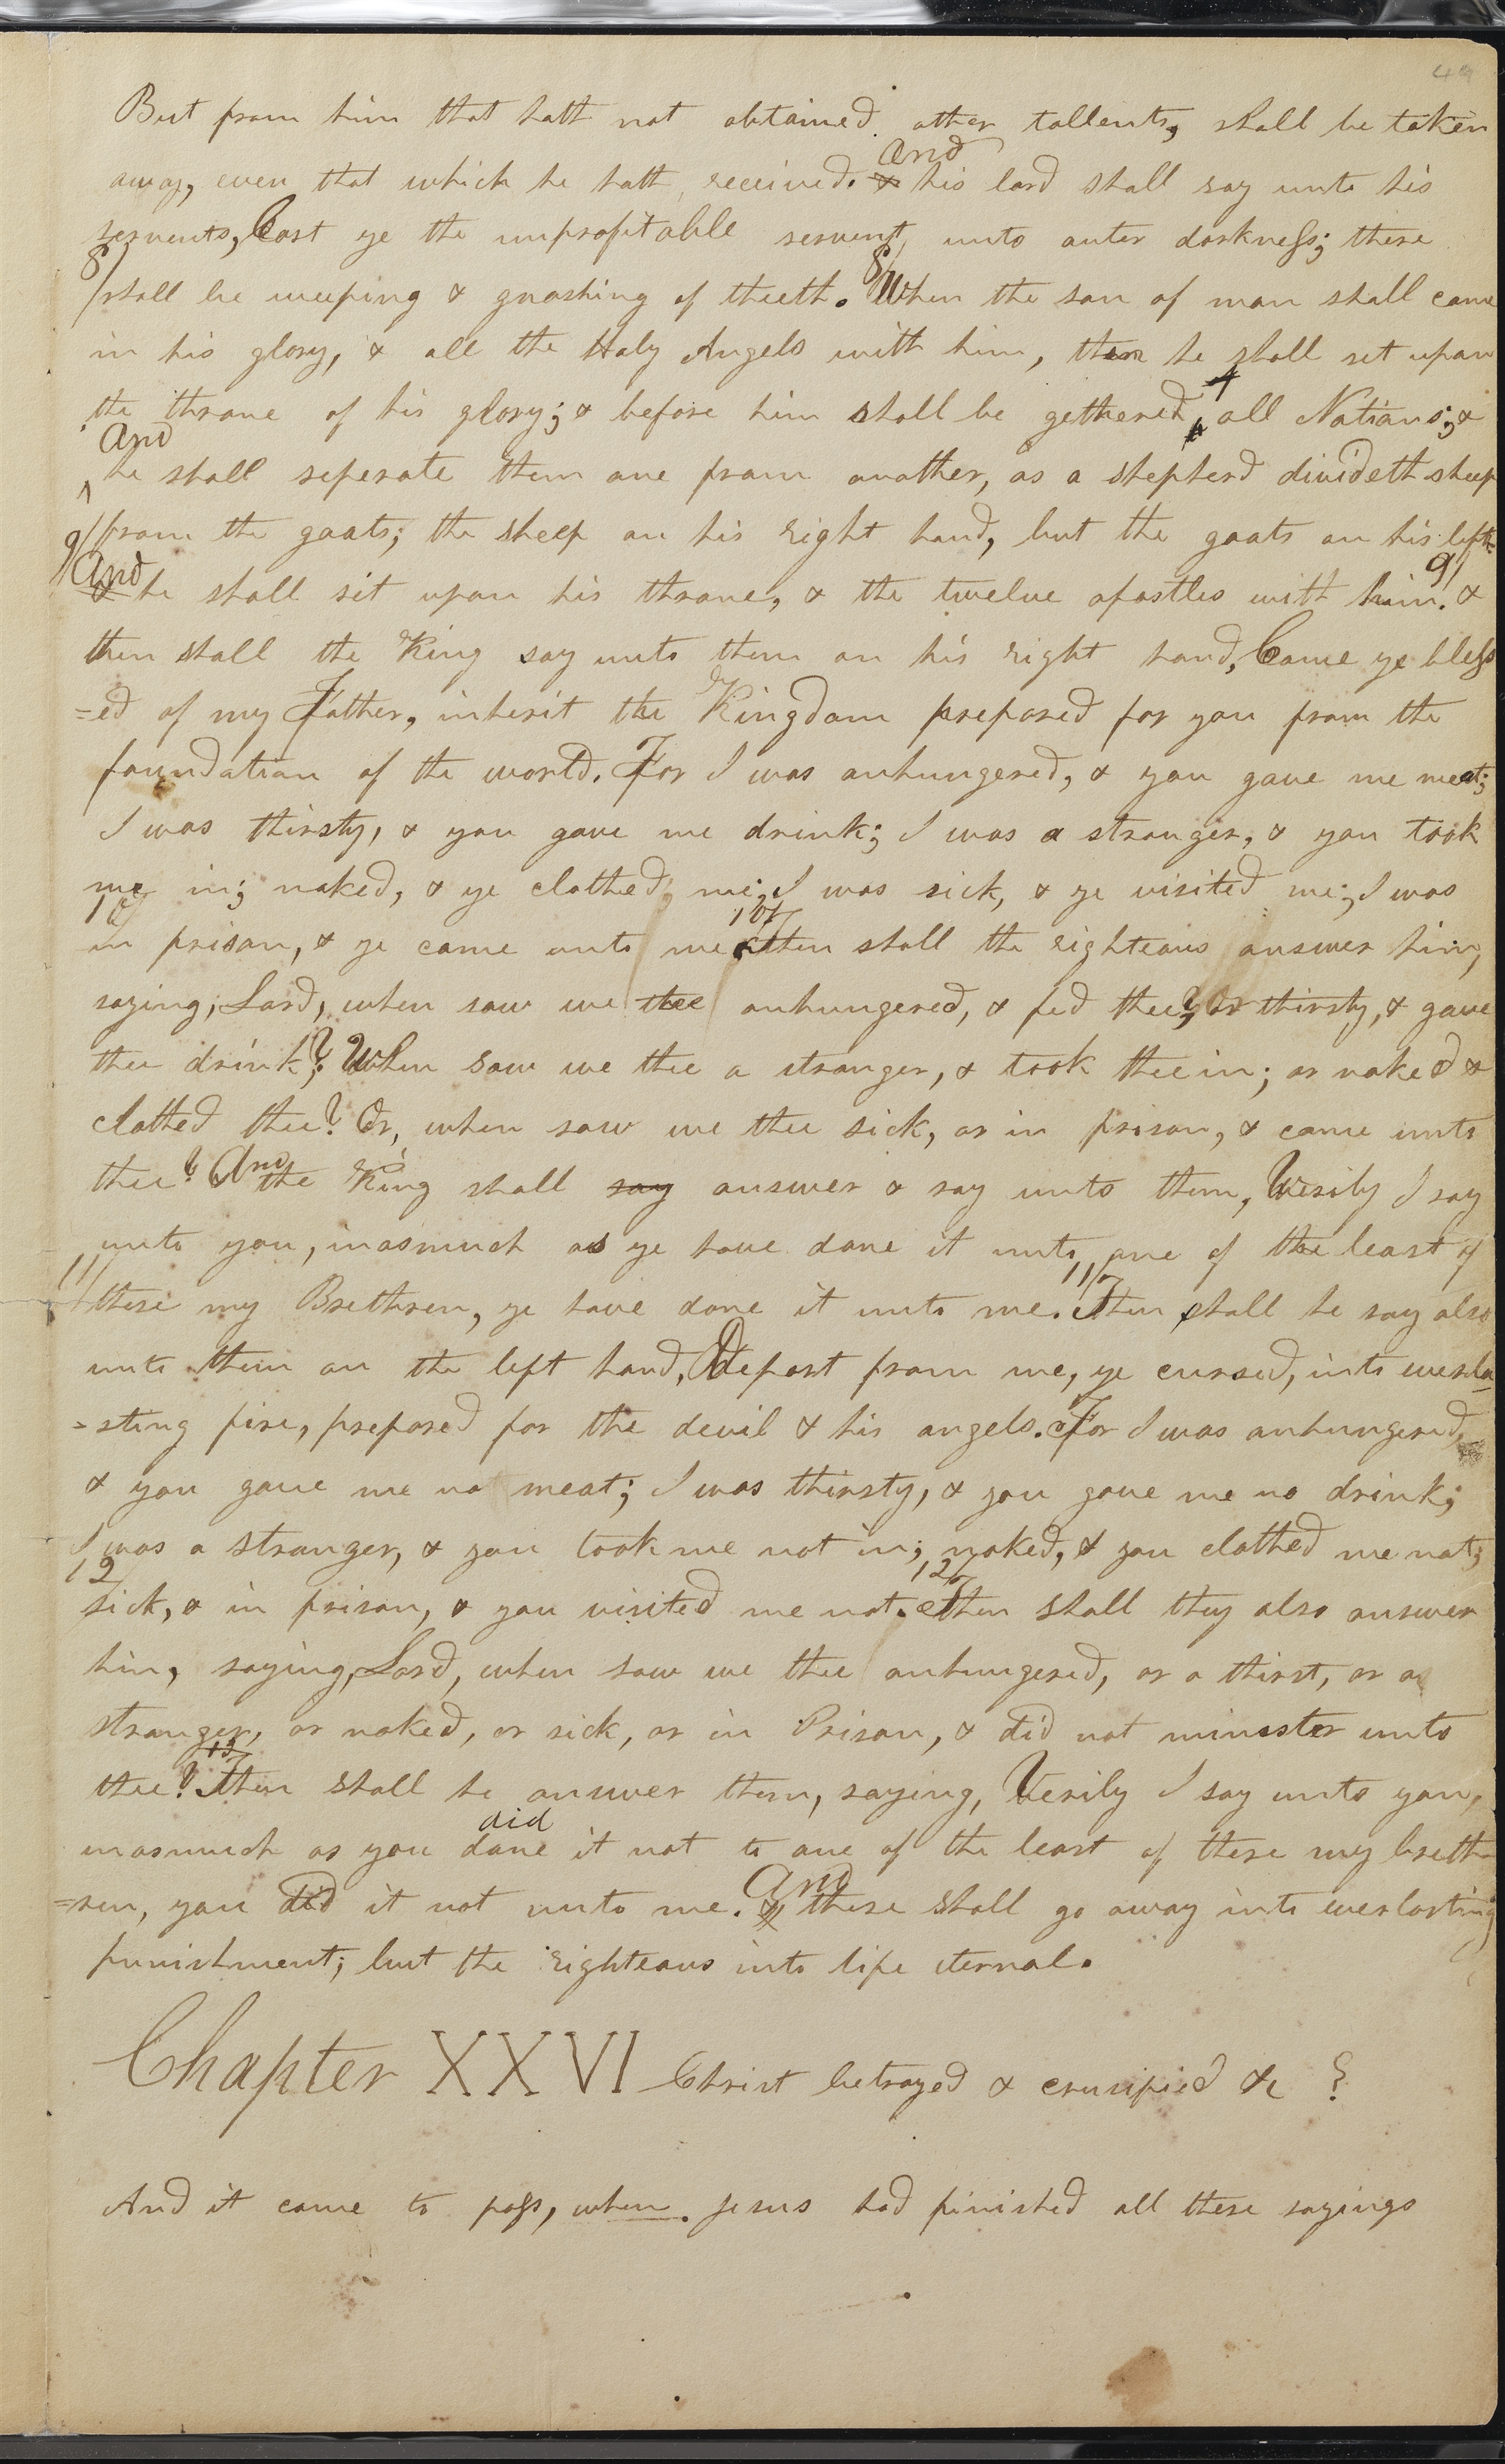 49
But from him that hath not obtained other tallents, shall be taken
and
away, even that which he hath received. & his lord shall say unto his
servents, Cast ye the unprofitable servent, unto outer darkness; there
8/ 8/
shall be weeping & gnashing of theeth. When the son of man shall come
in his glory, & all the Holy Angels with him, then he shall set upon
the throne of his glory; & before him shall be gethered, all Nations; &
and
he shall seperate them one from another, as a shepherd divideth sheep
from the goats; the sheep on his right hand, but the goats on his left.
9/ And 9/
& he shall sit upon his throne, & the twelve apostles with him. &
then shall the King say unto them on his right hand, Come ye bless
=ed of my Father, inherit the Kingdom prepared for you from the
foundation of the world. For I was anhungered, & you gave me meat;
I was thirsty, & you gave me drink; I was a stranger, & you took
me in; naked, & ye clothed me; I was sick, & ye visited me; I was
10/ 10/
in prison, & ye came unto me. Then shall the righteous answer him,
saying, Lord, when saw we thee anhungered, & fed thee? Or thirsty, & gave
thee drink? When saw we thee a stranger, & took thee in; or naked &
clothed thee? Or, when saw we thee sick, or in prison, & came unto
thee? And the King shall say answer & say unto them, Verily I say
unto you, inasmuch as ye have done it unto one of the least of
11/ 11/
these my Brethren, ye have done it unto me. Then shall he say also
unto them on the left hand, Depart from me, ye cursed, into everla
=sting fire, prepared for the devil & his angels. For I was anhungered,
& you gave me no meat; I was thirsty, & you gave me no drink;
I was a stranger, & you took me not in; naked, & you clothed me not;
12/ 12/
sick, & in prison, & you visited me not. Then shall they also answer
him, saying, Lord, when saw we thee anhungered, or a thirst, or a
stranger, or naked, or sick, or in Prison, & did not minester unto
13
thee? Then shall he answer them, saying, Verily I say unto you,
did
inasmuch as you done it not to one of the least of these my breth
=ren, you did it not unto me. & these shall go away into everlasting
And
punishment; but the righteous into life eternal.
Chapter XXVI Christ betrayed & crusified &c
And it came to pass, when Jesus had finished all these sayings